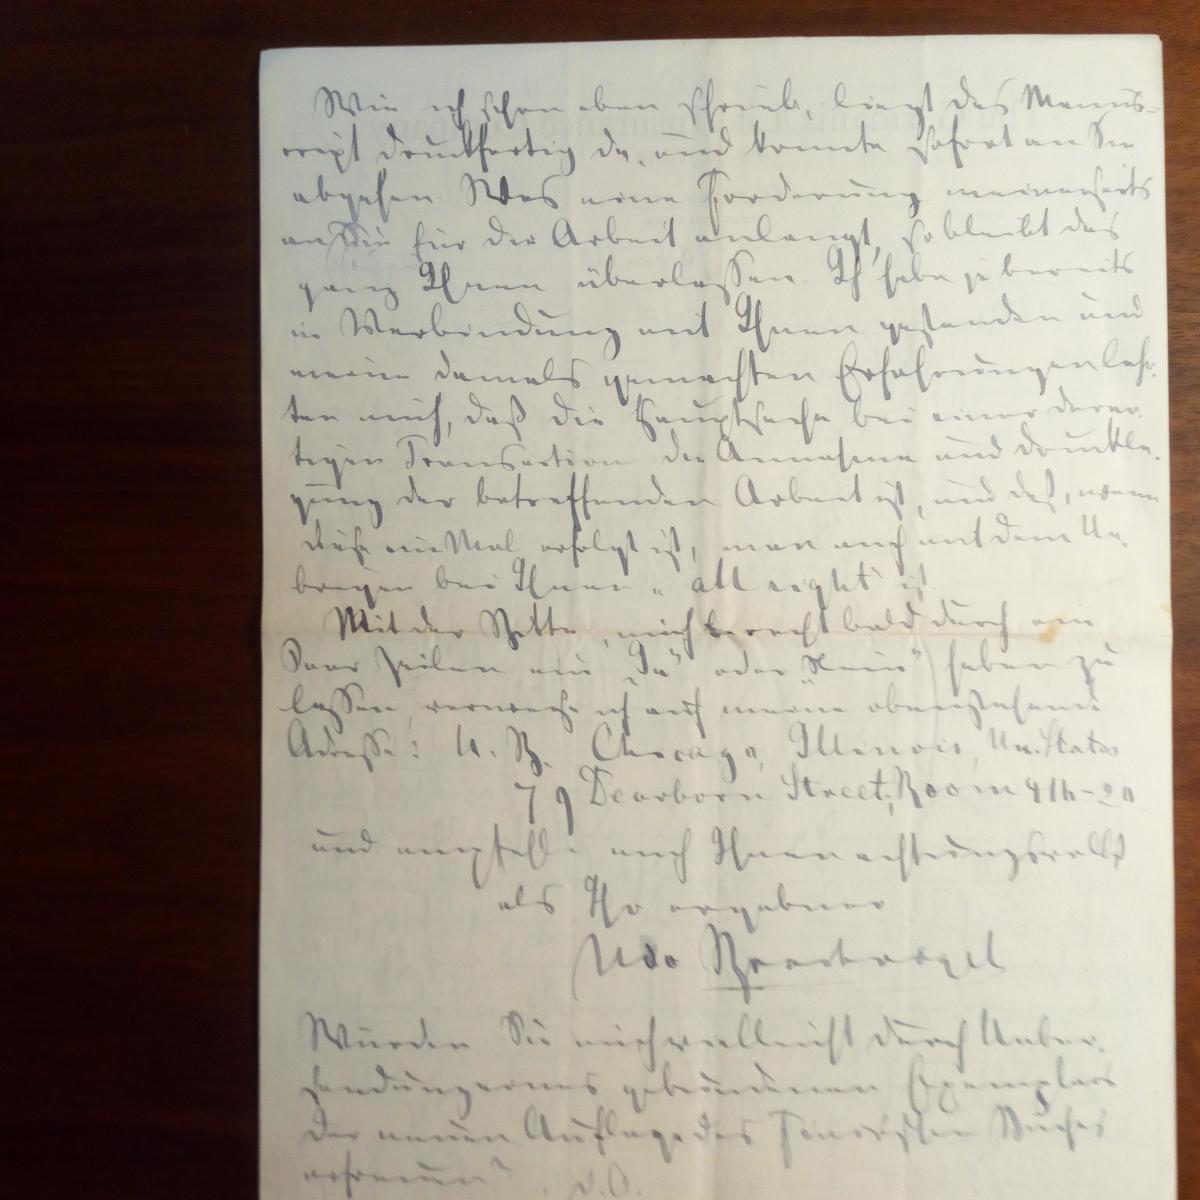 Wie ich schon oben schrieb, liegt das Manus-
cript druckfertig da, und könnte sofort an Sie
abgehen. Was eine Forderung meinerseits
an Sie für die Arbeit anlangt, so bleibt das
ganz Ihnen überlassen. Ich habe ja bereits
in Verbindung mit Ihnen gestanden und
meine damals gemachten Erfahrungen lehr-
ten mich, daß die Hauptsache bei einer derar-
tigen Transaction die Annahme und Druckle-
gung der betreffenden Arbeit ist, und daß, wenn
diese ein Mal erfolgt ist, man auch mit dem Ue-
brigen bei Ihnen „all right" ist.
Mit der Bitte, mich recht bald durch ein
Paar Zeilen ein „Ja" oder „Nein" haben zu
lassen, verweise ich auf meine obenstehende
Adresse: U. B. Chicago, Illinois, Un. States
79 Dearborn Street, Room
und empfehle mich Ihnen achtungsvollst
als Ihr ergebener
Udo Brachvogel
Würden Sie mich vielleicht durch Ueber-
sendung eines gebundenen Exemplars
der neuen Auflage des Buches
erfreuen? d. O.